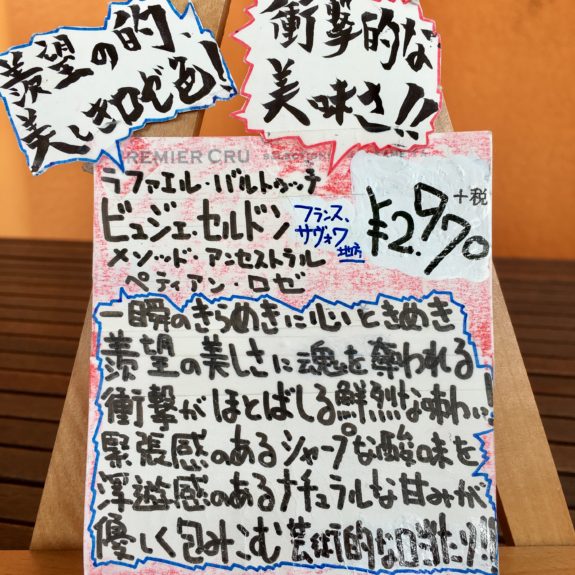 羨望の的、
美しきロゼ色!
衝撃的な
美味さ!!
PREMIER CRU
ラファエル・バルトゥッチ
ビュジェ・セルドン
メソッド・アンセストラル
ペティアン・ロゼ
フランス、
サヴォワ
地方
+税
¥2.970
一瞬のきらめきに心ときめき
羨望の美しさに魂を奪われる
衝撃がほとばしる鮮烈な味わい!
緊張感のあるシャープな酸味を
浮遊感のあるナチュラルな甘みが
優しく包みこむ芸術的な口当たり!!